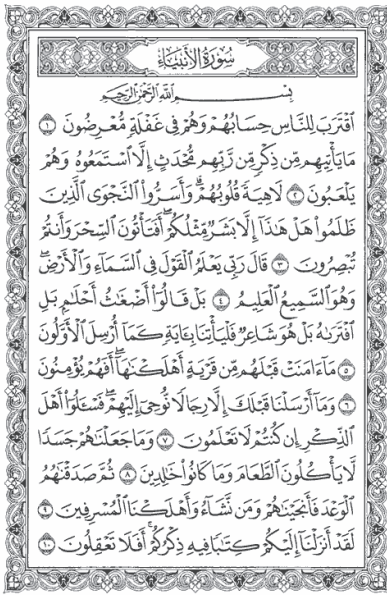 سُورَةُ الْأَنْبِيَاءِ
بِسْمِ اللَّهِ الرَّحْمَٰنِ الرَّحِيمِ
ٱقْتَرَبَ لِلنَّاسِ حِسَابُهُمْ وَهُمْ فِى غَفْلَةٍ مُّعْرِضُونَ ١
مَا يَأْتِيهِم مِّن ذِكْرٍ مِّن رَّبِّهِم مُّحْدَثٍ إِلَّا ٱسْتَمَعُوهُ وَهُمْ
يَلْعَبُونَ ٢ لَاهِيَةً قُلُوبُهُمْ ۗ وَأَسَرُّوا۟ ٱلنَّجْوَى ٱلَّذِينَ
ظَلَمُوا۟ هَلْ هَٰذَآ إِلَّا بَشَرٌ مِّثْلُكُمْ ۖ أَفَتَأْتُونَ ٱلسِّحْرَ وَأَنتُمْ
تُبْصِرُونَ ٣ قَالَ رَبِّى يَعْلَمُ ٱلْقَوْلَ فِى ٱلسَّمَآءِ وَٱلْأَرْضِ ۖ
وَهُوَ ٱلسَّمِيعُ ٱلْعَلِيمُ ٤ بَلْ قَالُوٓا۟ أَضْغَٰثُ أَحْلَٰمٍۭ بَلِ
ٱفْتَرَىٰهُ بَلْ هُوَ شَاعِرٌ فَلْيَأْتِنَا بِـَٔايَةٍ كَمَآ أُرْسِلَ ٱلْأَوَّلُونَ
٥ مَآ ءَامَنَتْ قَبْلَهُم مِّن قَرْيَةٍ أَهْلَكْنَٰهَآ ۖ أَفَهُمْ يُؤْمِنُونَ
٦ وَمَآ أَرْسَلْنَا قَبْلَكَ إِلَّا رِجَالًا نُّوحِىٓ إِلَيْهِمْ ۖ فَسْـَٔلُوٓا۟ أَهْلَ
ٱلذِّكْرِ إِن كُنتُمْ لَا تَعْلَمُونَ ٧ وَمَا جَعَلْنَٰهُمْ جَسَدًا
لَّا يَأْكُلُونَ ٱلطَّعَامَ وَمَا كَانُوا۟ خَٰلِدِينَ ٨ ثُمَّ صَدَقْنَٰهُمُ
ٱلْوَعْدَ فَأَنجَيْنَٰهُمْ وَمَن نَّشَآءُ وَأَهْلَكْنَا ٱلْمُسْرِفِينَ ٩
لَقَدْ أَنزَلْنَآ إِلَيْكُمْ كِتَٰبًا فِيهِ ذِكْرُكُمْ ۖ أَفَلَا تَعْقِلُونَ ١٠